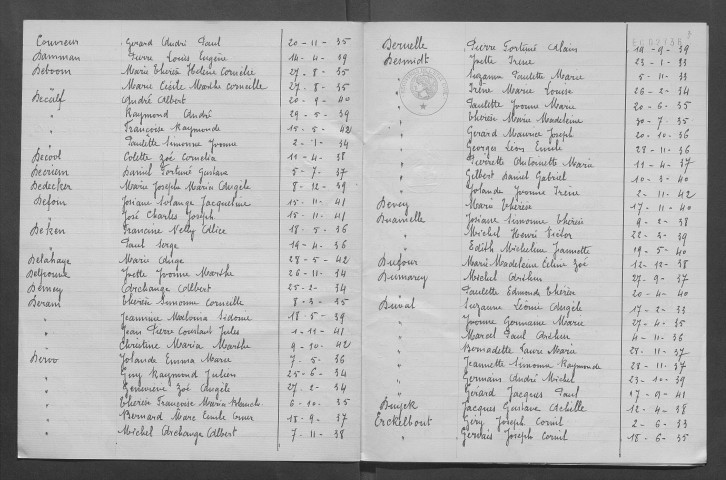 Couvreur Gérard André Paul 20 - 11 - 35
Damman Pierre Louis Eugène 14 - 4 - 39
Deboom Marie Thérèse Hélène Cornélie 27 - 8 - 35
" Marie Cécile Marthe Corneille 27 - 8 - 35
Decalf André Albert 20 - 9 - 40
" Raymond André 29 - 5 - 39
" Françoise Raymonde 15 - 5 - 42
" Paulette Simonne Yvonne 2 - 1 - 34
Decool Colette Zoé Cornelia 11 - 4 - 38
Daniel Fortuné Gustave 5 - 7 - 37
Dedecker Marie Joseph Maria Angèle 8 - 12 - 39
Defour Josiane Solange Jacqueline 15 - 11 - 41
" José Charles Joseph 15 - 11 - 41
Deken Francine Nelly Alice 18 - 5 - 36
" Paul Serge 19 - 4 - 36
Delahaye Marie Ange 28 - 5 - 42
Yvette Yvonne Marthe 26 - 11 - 34
Demey Archange Albert 25 - 2 - 34
Deram Thérèse Simonne Corneille 8 - 3 - 35
" Jeannine Malvina Sidonie 18 - 5 - 39
" Jean Pierre Constant Jules 1 - 11 - 41
" Christine Maria Marthe 9 - 10 - 42
Deroo Yolande Emma Marie 7 - 5 - 36
" Guy Raymond Julien 25 - 6 - 34
" Geneviève Zoé Angèle 27 - 2 - 34
" Thérèse Françoise Maria Blanch. 6 - 10 - 35
" Bernard Marc Emile Omer 18 - 9 - 37
" Michel Archange Albert 7 - 11 - 38
Deruelle Pierre Fortuné Alain 19 - 9 - 39
Desmidt Yvette Irène 23 - 1 - 33
" Suzanne Paulette Marie 5 - 11 - 33
" Irène Marie Louise 26 - 2 - 34
" Paulette Yvonne Marie 20 - 6 - 35
" Thérèse Marie Madeleine 30 - 7 - 35
" Gérard Maurice Joseph 20 - 10 - 36
" Georges Léon Emile 28 - 11 - 36
" Pierrette Antoinette Marie 11 - 4 - 37
" Gilbert Daniel Gabriel 10 - 3 - 40
" Yolande Yvonne Irène 2 - 11 - 42
Devey Marie Thérèse 17 - 11 - 40
Josiane Simonne Thérèse 9 - 2 - 38
" Michel Henri Victor 22 - 3 - 39
" Edith Micheline Jeannette 19 - 5 - 40
Dufour Marie Madeleine Céline Zoé 12 - 12 - 38
Dumarey Michel Arthur 27 - 9 - 37
" Paulette Edmonde Thérèse 20 - 4 - 40
Duval Suzanne Léonie Angèle 17 - 2 - 33
" Yvonne Germaine Marie 27 - 4 - 35
" Marcel Paul Arthur 4 - 11 - 36
" Bernadette Laure Marie 28 - 11 - 37
" Jeannette Simonne Raymonde 28 - 11 - 37
" Germain André Michel 23 - 10 - 39
" Gérard Jacques Paul 17 - 9 - 41
Duyck Jacques Gustave Achille 12 - 4 - 38
Erckelbout Géry Joseph Cornil 2 - 6 - 33
" Gervais Joseph Cornil 18 - 6 - 35